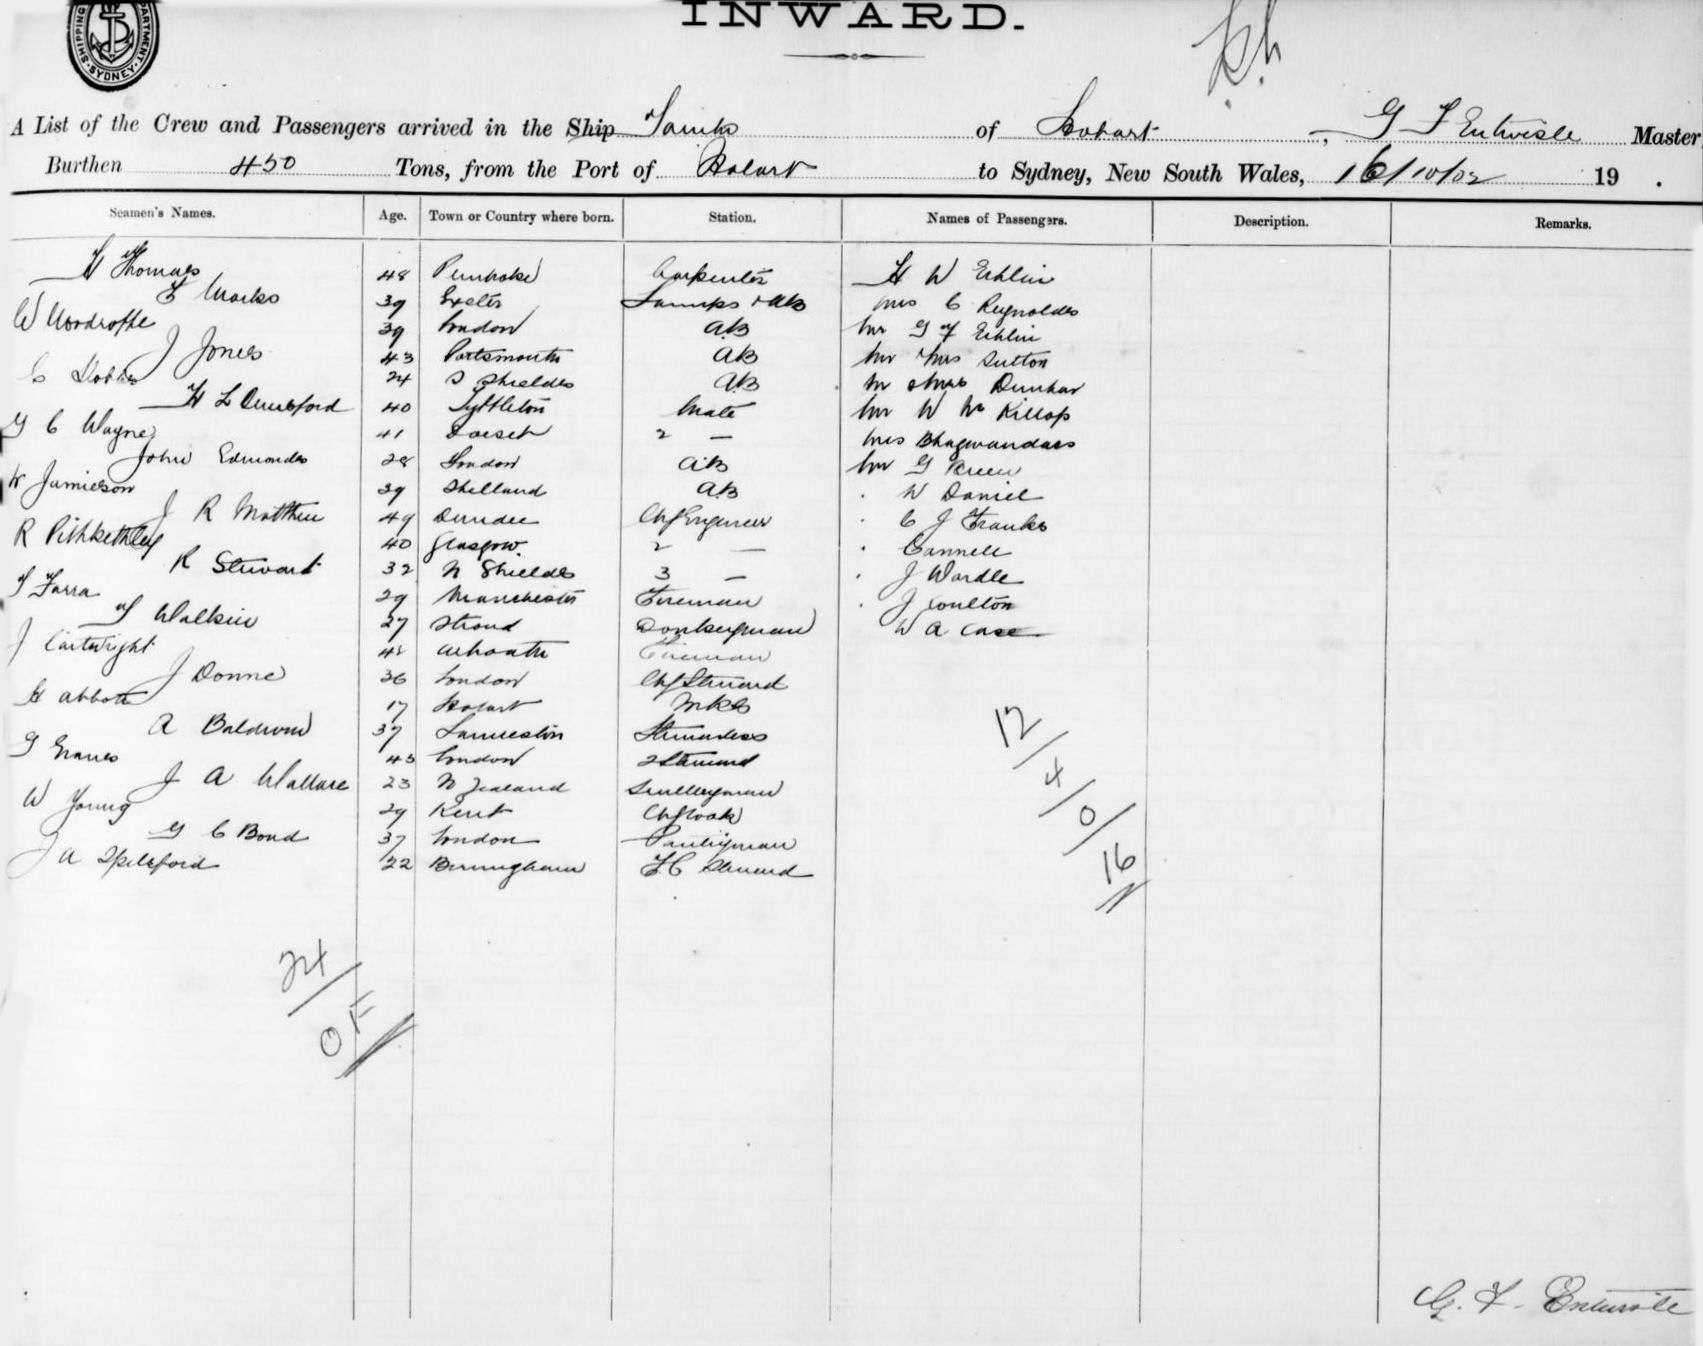 SHIPPING DEPARTMENT. SYDNEY.
INWARD.
A List of the Crew and Passengers arrived in the Ship of Hobart, G F Entwisle Master
Burthen 450 Tons, from the Port of Hobart to Sydney, New South Wales, 16/10/02 19 .
Seamen's Names. Age. Town or Country where born. Station. Names of Passengers. Description. Remarks.
H Thomas 48 Pembroke Carpenter H W Echlin
F Marks 39 Exeter Lamps & AB Mrs C Reynolds
W Woodroffe 39 London AB Mr G F Echlin
J Jones 43 Portsmouth AB Mr & Mrs Sutton
C Hobbs 24 S Shields AB Mr & Mrs Dunbar
H L Dunsford 40 Lyttleton Mate Mr W Mc Killop
G C Wayne 41 Dorset 2 — Mrs Bhagwandass
John Edmondes 28 London AB Mr G Breen
W Jamieson 39 Shetland AB . W Daniel
J R Matthew 49 Dundee Chf Engineer . C J Franks
R Pithkethley 40 Glasgow. 2 — . Cannell
R Stewart 32 N Shields 3 — . J Wardle
T Farra 29 Manchester Fireman . J Coulton
T Watkins 27 Stroud Donkeyman W A Case
J Cartwright 48 Arbroath Fireman
J Donne 36 London Chf Steward
H Abbott 17 Hobart
A Baldwin 37 Launceston Stewardess
G Graves 43 London 2 Steward
J A Wallace 23 N Zealand Scullery man
W Young 29 Kent Chf Cook
G C Bond 37 London Pantryman
J A Spilsford 22 Birmingham F C Steward
12/4/0/16
24/0 F
G. F. Entwisle